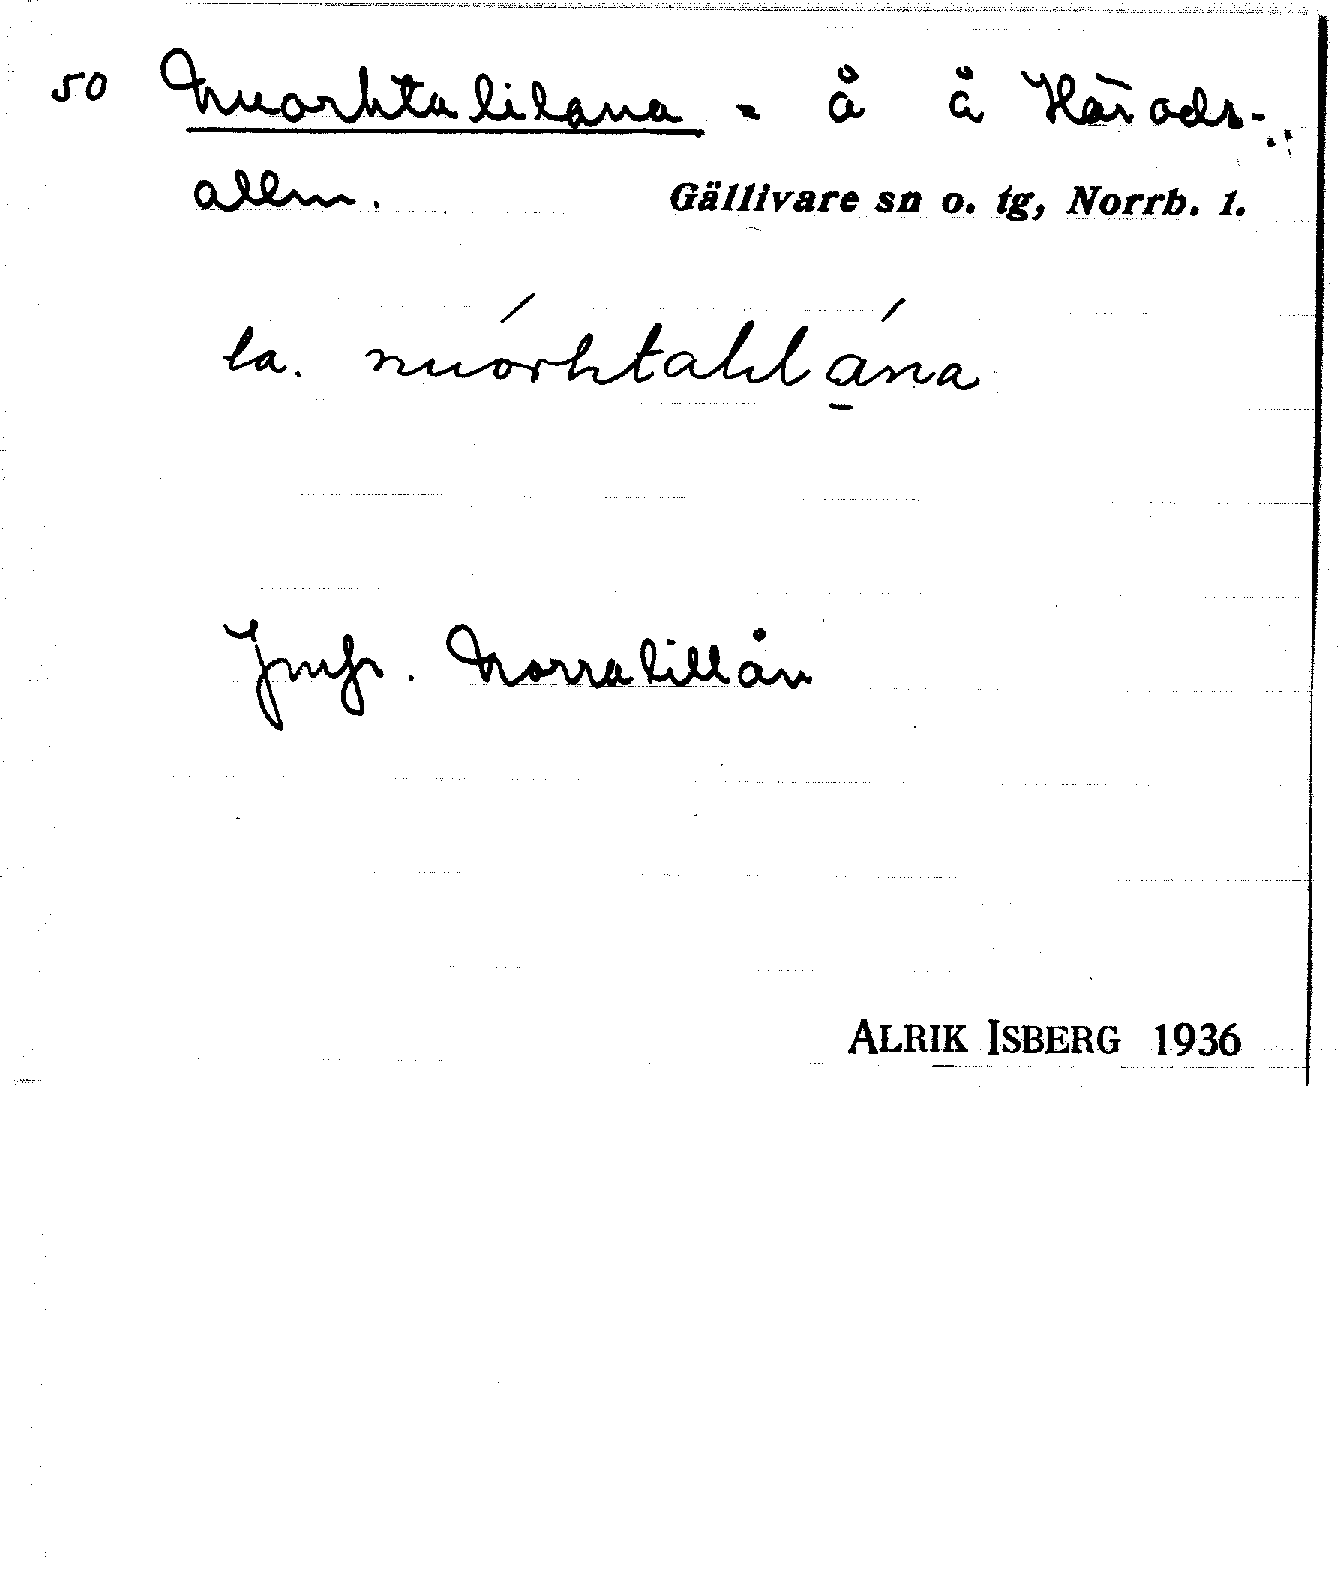 50 Nuorhtalilana = å å Härads-
allm. Gällivare sn o. tg, Norrb. 1.
la. nuórhtalilána
Jmfr. Norralillån
ALRIK ISBERG 1936